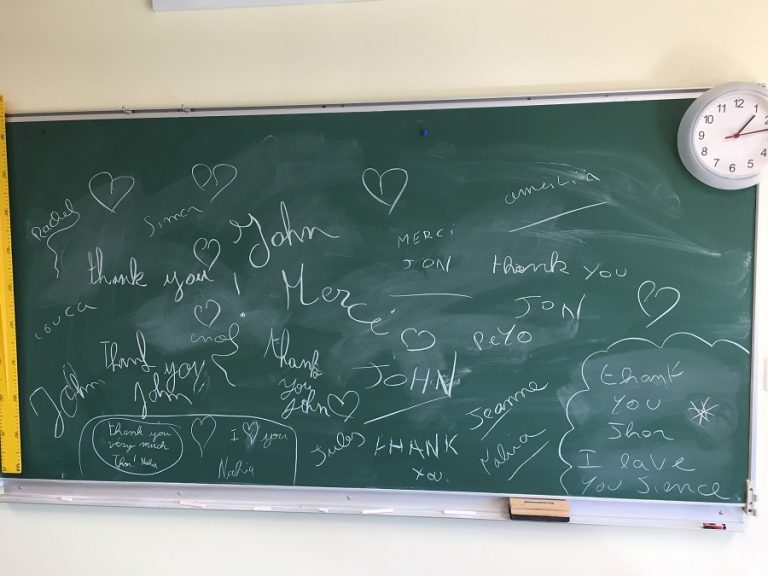 Rachel
Simon
John
ameilia
MERCI
JON
thank you
JON
thank you !
Merci
Louca
PeYO
Thank you
John!
enol
thank
you
John
JOHN
John
Jeanne
thank
You
Jhon
I lave
You Sience
thank you
very much
Jhon! Nahia
I you
Nahia
Jules
tHANK
You.
12
1
2
3
4
5
6
7
8
9
10
11